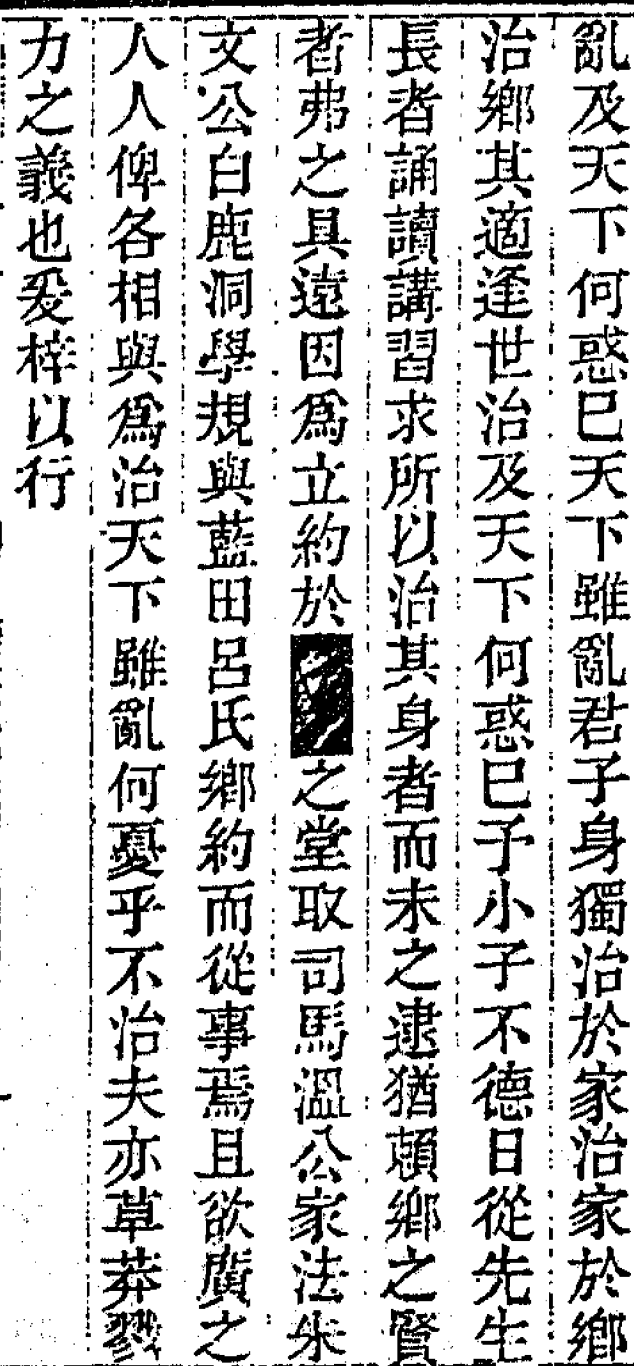 亂及天下何惑巳天下雖亂君子身獨治於家治家於鄉
治鄉其適逢世治及天下何惑巳予小子不德日從先生
長者誦讀講習求所以治其身者而未之逮猶賴鄉之賢
者弗之具遠因爲立約於之堂取司馬溫公家法朱
文公白鹿洞學規與藍田呂氏鄉約而從事焉且欲廣之
人人俾各相與爲治天下雖亂何憂乎不治夫亦草莽戮
力之義也爰梓以行